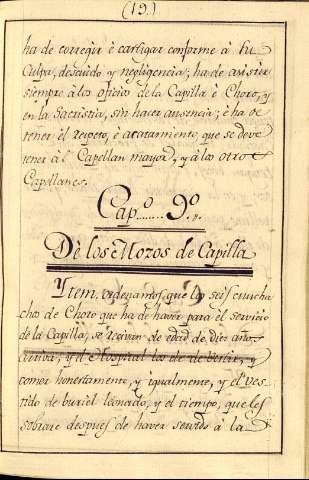 (19.)
ha de corregir è castigar conforme à su
Culpa, descuido y negligencia; ha de asistir
siempre à los oficios de la Capilla è Choro, y
en la Sacristia, sin hacer ausencia; è ha de
tener el respeto, è acatamiento, que se deve
tener à l Capellan mayor, y à los otros
Capellanes.
Cap.º ........ 9.º
De los Mozos de Capilla
Ytem. ordenamos, que los seis muchachos
chos de Choro que ha de haver para el servicio
de la Capilla, se reciban de edad de diez años
arriva, y el Hospital los de de vestir, y
comer honestamente, y igualmente, y el ves-
tido de buriel leonado, y el tiempo, que les
sobrare despues de haver servido à la